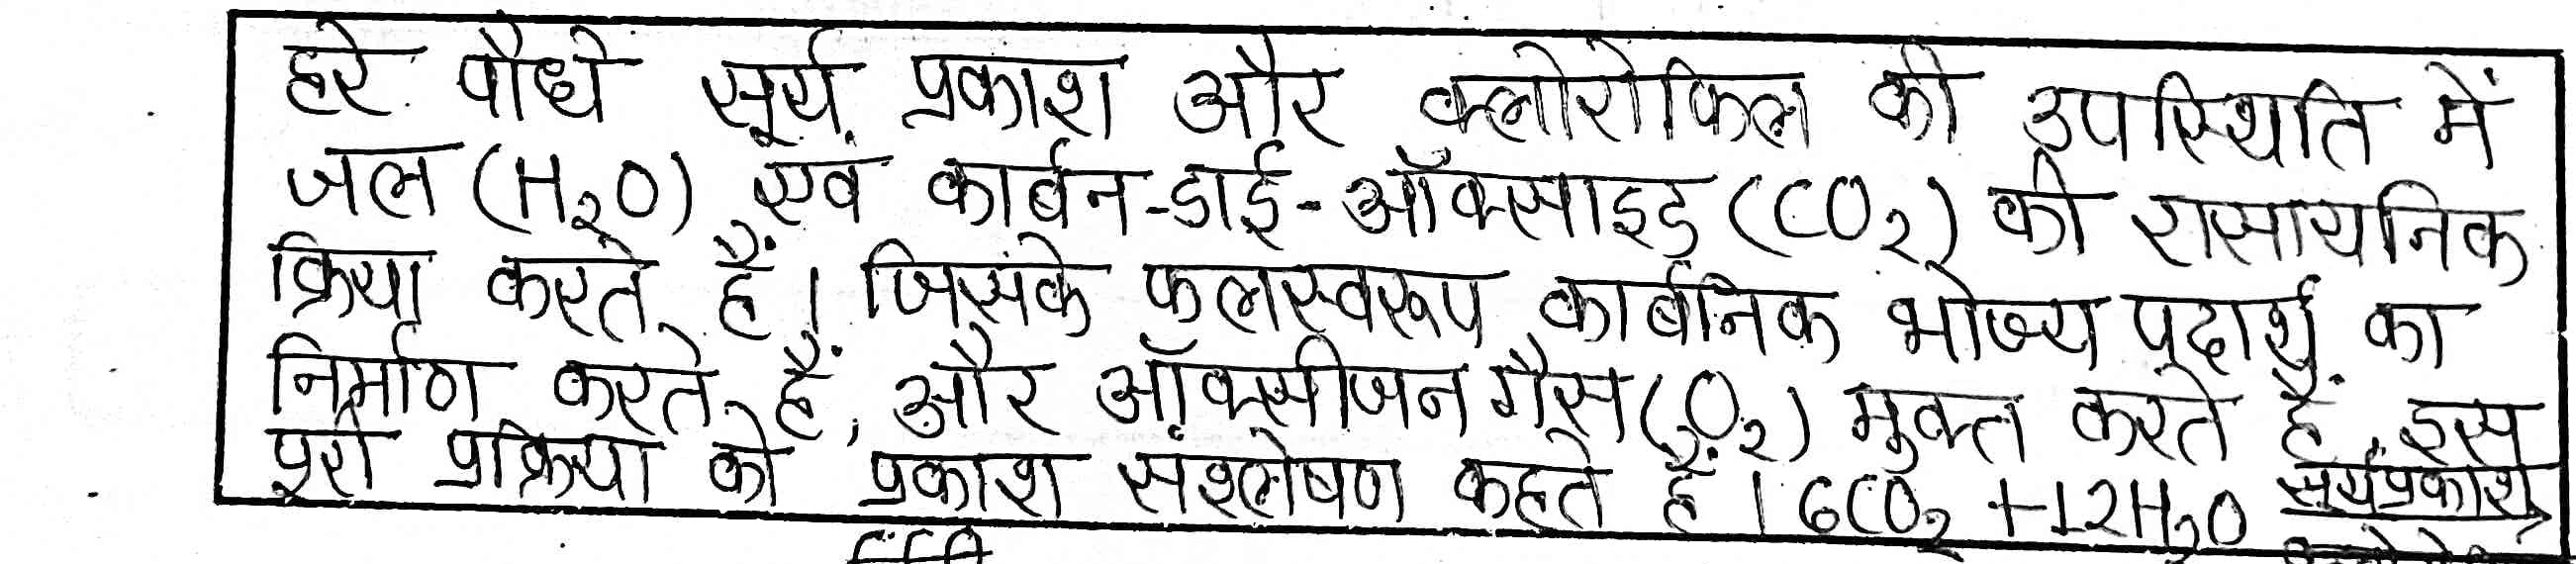 हरे पौधे सूर्य प्रकाश और क्लोरोफिल की उपस्थिति में
जल (H₂O) एवं कार्बन-डाई-ऑक्साइड (CO₂) की रासायनिक
क्रिया करते हैं। जिसके फलस्वरूप कार्बनिक भोज्य पदार्थ का
निर्माण करते हैं, और ऑक्सीजन गैस (O₂) मुक्त करते हैं, इस
पूरी प्रक्रिया को प्रकाश संश्लेषण कहते हैं। 6CO₂ +12H₂O सूर्यप्रकाश